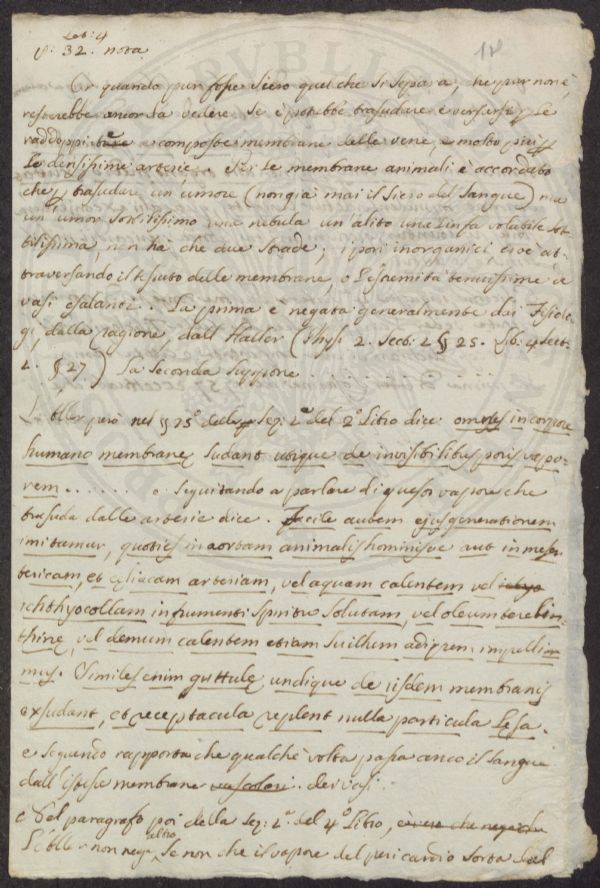 Let: 4
§. 32. nota
18
Or quando pur fosse siero quel che si separa, ne pur non è,
resterebbe ancor da vedere se è potrebbe trasudare e versarsi p. le
raddoppi e composte membrane delle vene, e molto più p.
le densissime arterie. Per le membrane animali è accordato
che p. trasudare un'umore (non già mai il siero del sangue) ma
un'umor sottilissimo una nebula un'alito una linfa volubile sot-
tilissima, non ha che due strade, i pori inorganici cioè at-
traversando il tessuto delle membrane, o l'estremità tenuissime de
vasi esalanti. La prima è negata generalmente dai Fisiolo-
gi, dalla ragione, dall'Haller (Phys: 2. Sect: 2 § 25. Lib. 4 Sect.
2. § 27.) La seconda suppone . . . . . . . . . .
L'Aller però nel § 25º della Sez: 2ª del 2º Libro dice omnes in corpore
humano membranę sudant ubique de invisibilibus poris vapo-
rem . . . . . . e seguitando a parlare di questo vapore che
trasuda dalle arterie dice. Facile autem ejus generationem
imitamur, quoties in aortam animalis hominisve aut in mesen-
tericam, et cęliacam arteriam, vel aquam calentem vel
ichthyocollam in frumenti spiritu solutam, vel oleum terebin-
thinę, vel demum calentem etiam suillum adipem impelli-
mus. Similes enim guttulę undique de iisdem membranis
exsudant, et receptacula replent nulla particula lęsa.
e seguendo rapporta che qualche volta passa anco il sangue
dall'istesse membrane vascolari dei vasi.
e Nel paragrafo poi della Sez: 2ª del 4º Libro, è vero che nega che
L'Aller non nega altro, se non che il vapore del pericardio sorta dal